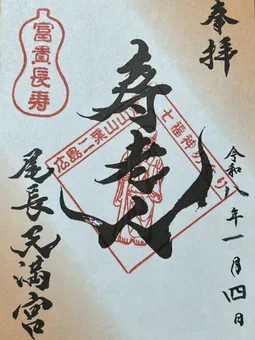 奉拝
富貴長寿
寿老人
広島二葉山山
七福神めぐり
令和八年一月四日
尾長天満宮